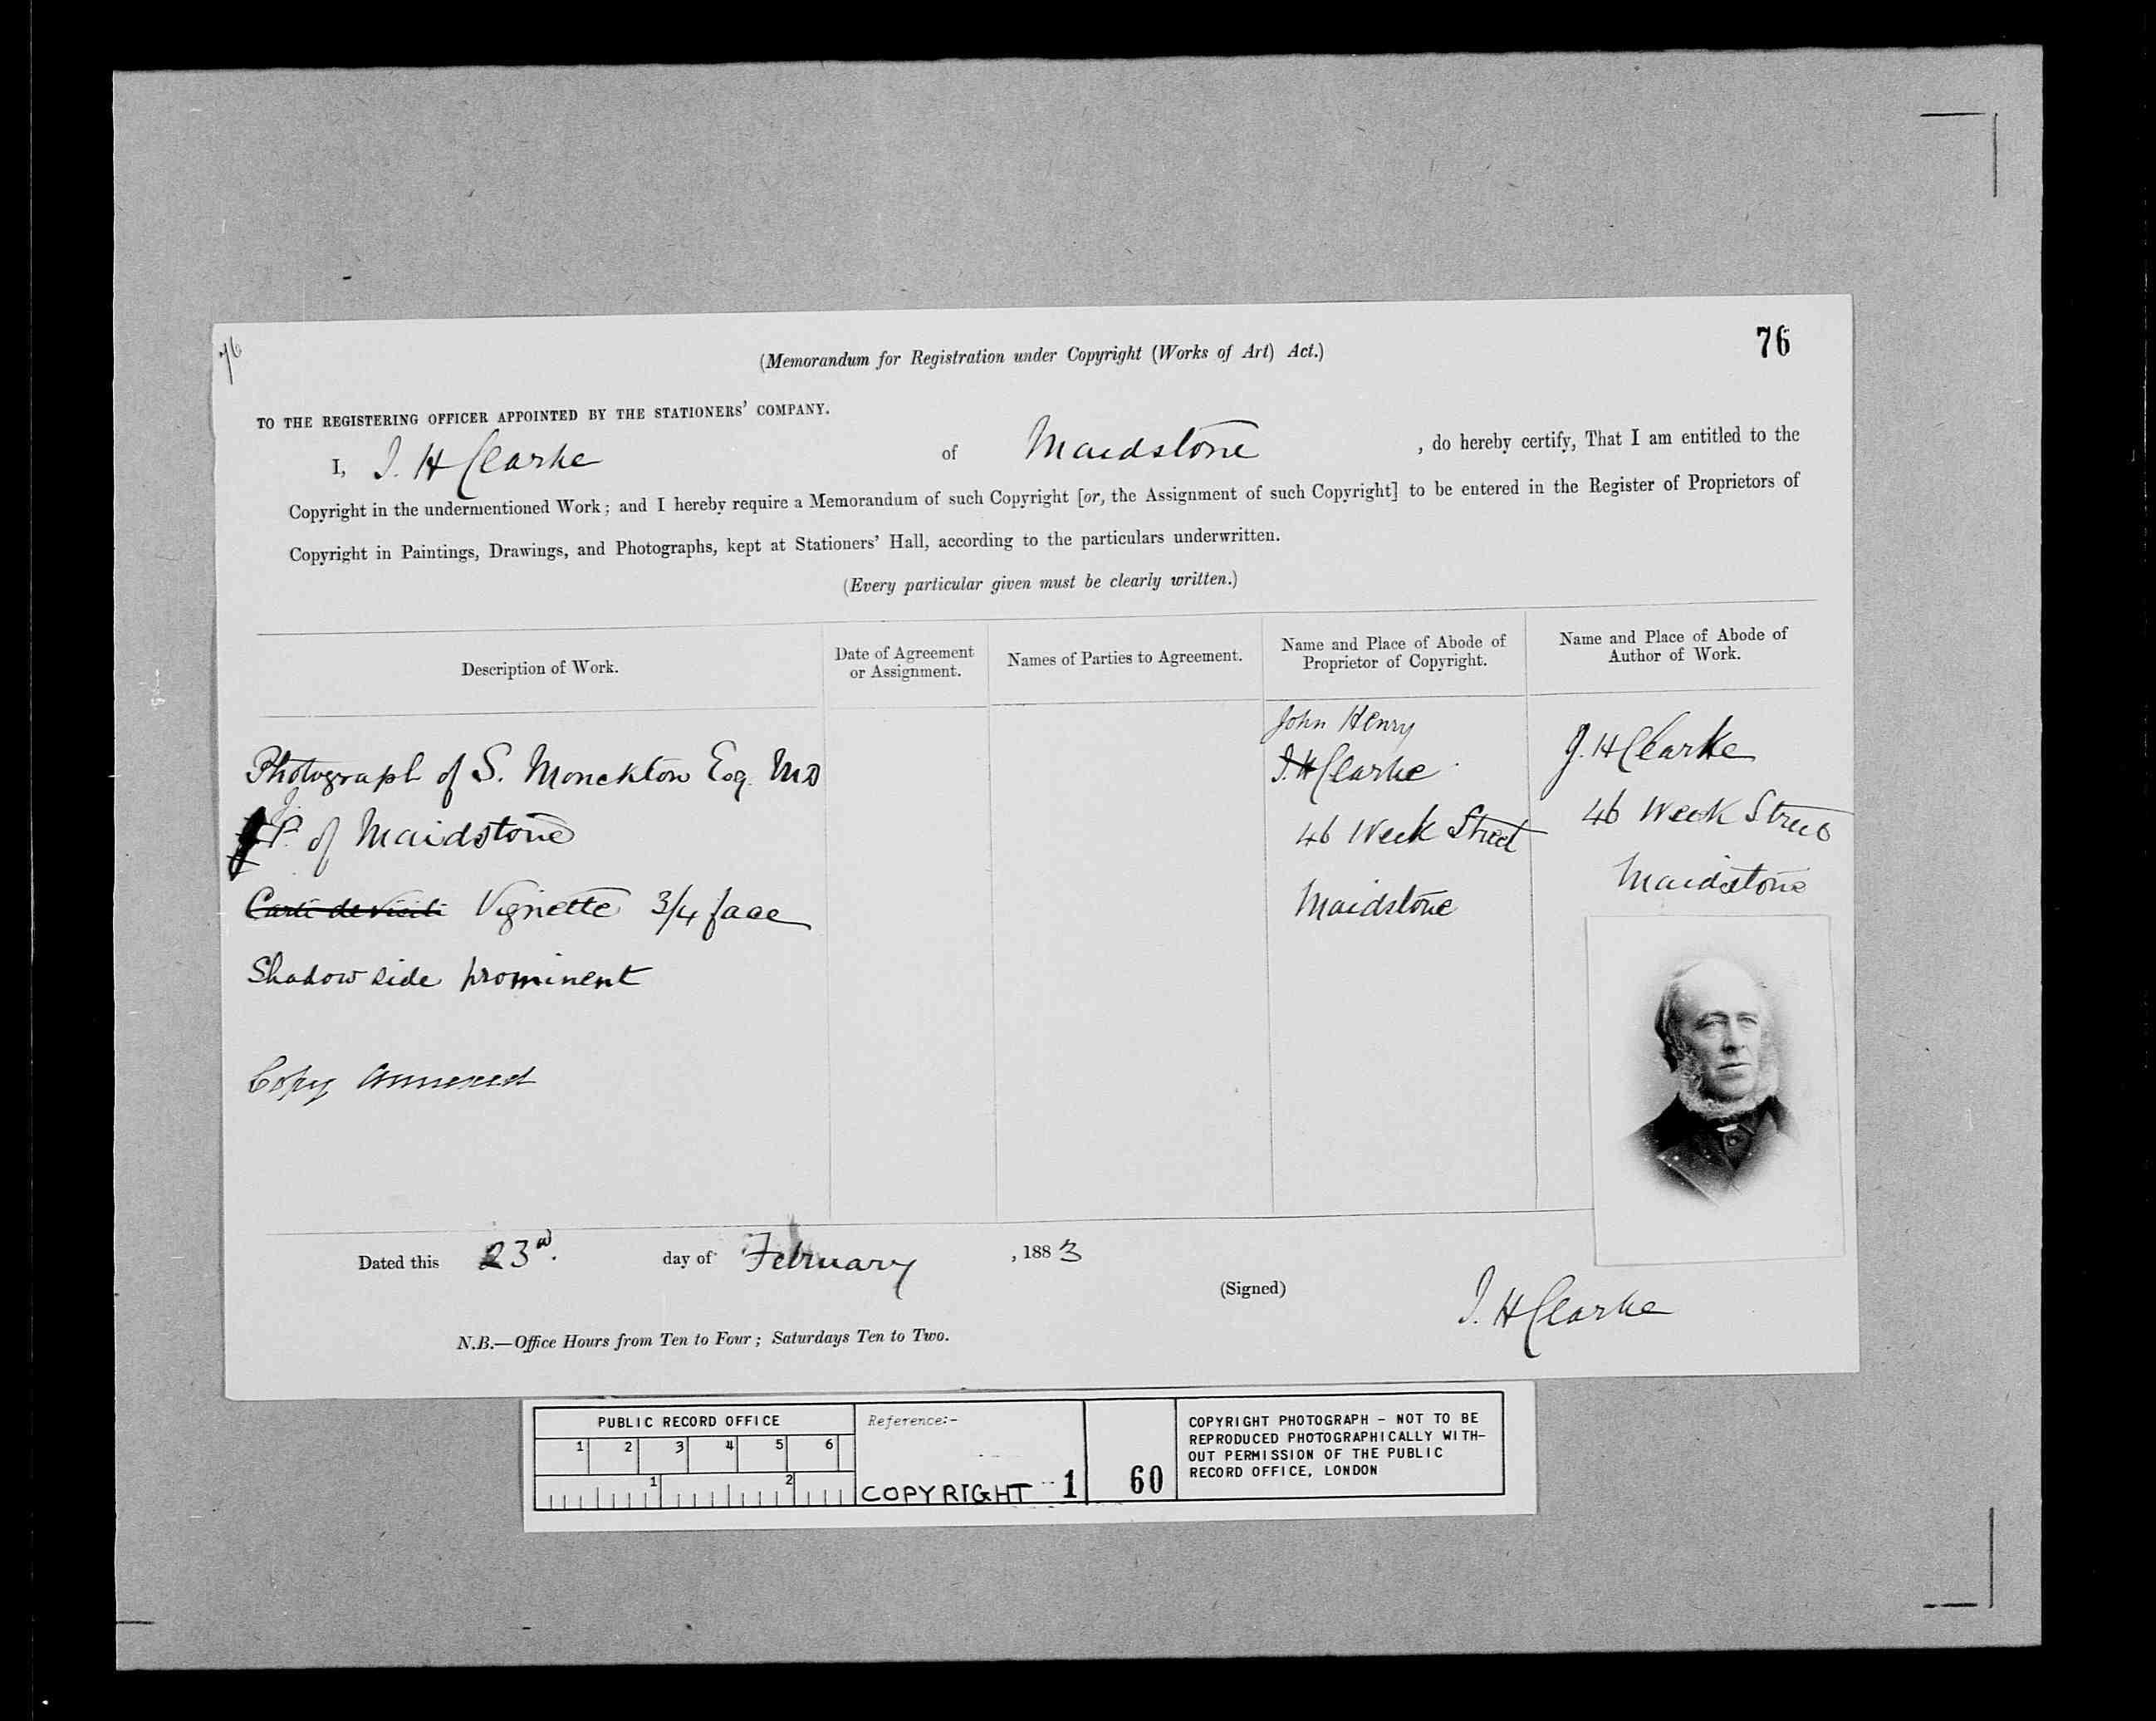 76
76
(Memorandum for Registration under Copyright (Works of Art) Act.)
TO THE REGISTERING OFFICER APPOINTED BY THE STATIONERS' COMPANY.
I, J. H Clarke of Maidstone, do hereby certify, That I am entitled to the
Copyright in the undermentioned Work; and I hereby require a Memorandum of such Copyright [or, the Assignment of such Copyright] to be entered in the Register of Proprietors of
Copyright in Paintings, Drawings, and Photographs, kept at Stationers' Hall, according to the particulars underwritten.
(Every particular given must be clearly written.)
Description of Work.
Date of Agreement
or Assignment.
Names of Parties to Agreement.
Name and Place of Abode of
Proprietor of Copyright.
Name and Place of Abode of
Author of Work.
Photograph of S. Monckton Esq. MD
J.P. of Maidstone
Carte de Visite Vignette 3/4 face
Shadow side prominent
Copy annexed
John Henry
J. H Clarke
46 Week Street
Maidstone
J. H Clarke
46 Week Street
Maidstone
Dated this 23rd. day of February, 1883
(Signed)
J. H Clarke
N.B.—Office Hours from Ten to Four; Saturdays Ten to Two.
PUBLIC RECORD OFFICE
1 2 3 4 5 6
1 2
Reference:-
COPYRIGHT 1
60
COPYRIGHT PHOTOGRAPH - NOT TO BE
REPRODUCED PHOTOGRAPHICALLY WITH-
OUT PERMISSION OF THE PUBLIC
RECORD OFFICE, LONDON